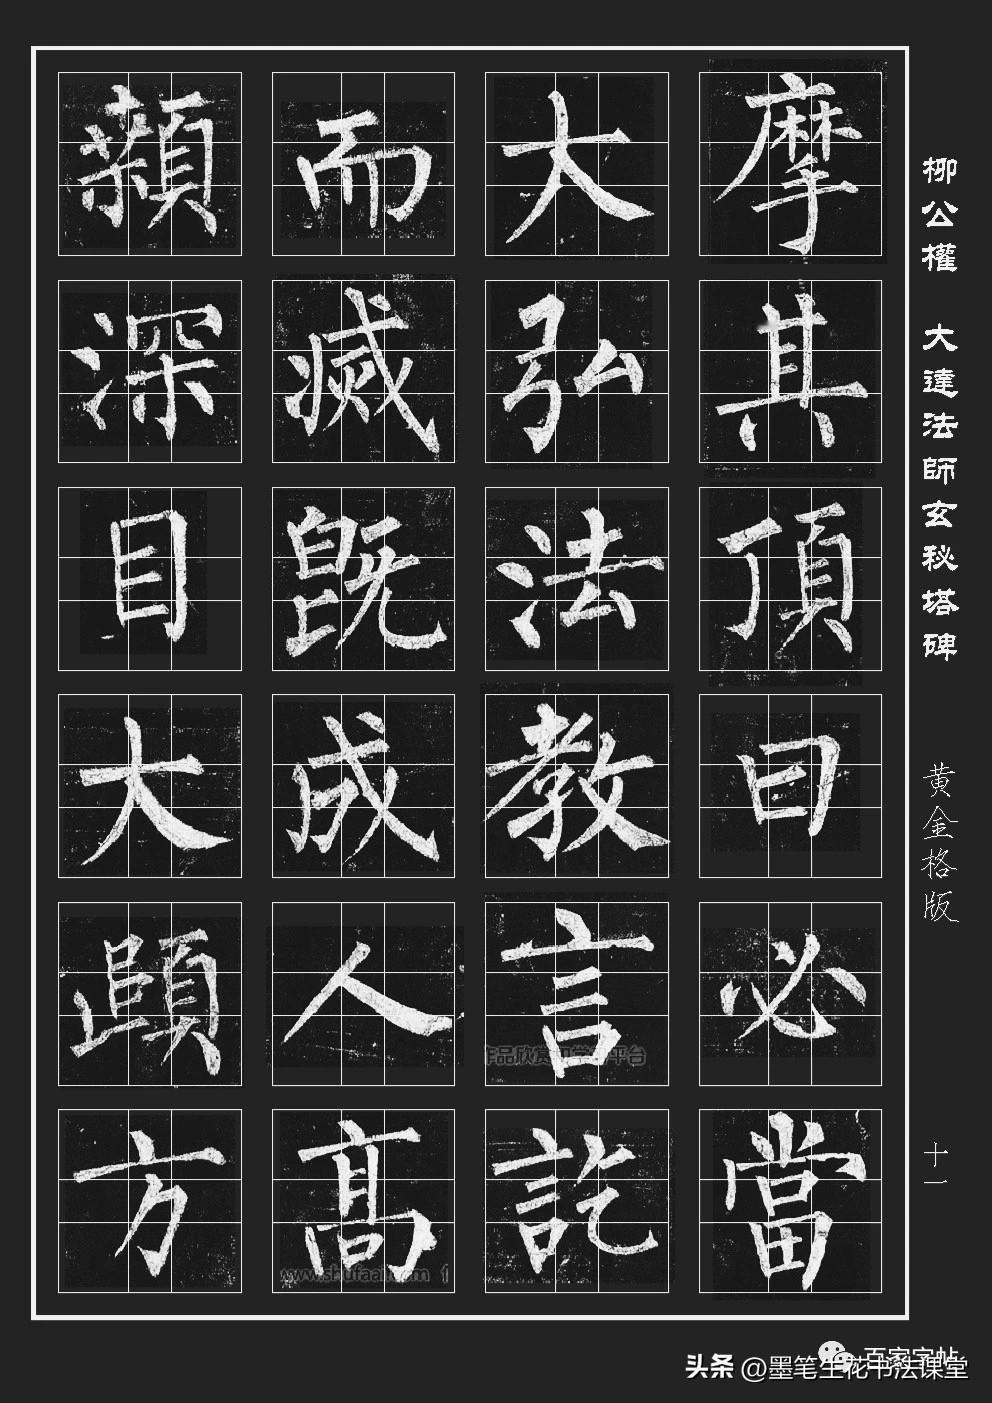 柳公權 大達法師玄秘塔碑 黄金格版 十一
摩其頂曰必當
大弘法教言訖
而滅既成人高
顙深目大頤方
作品欣赏 平台
百家字帖
头条 @墨笔生花书法课堂